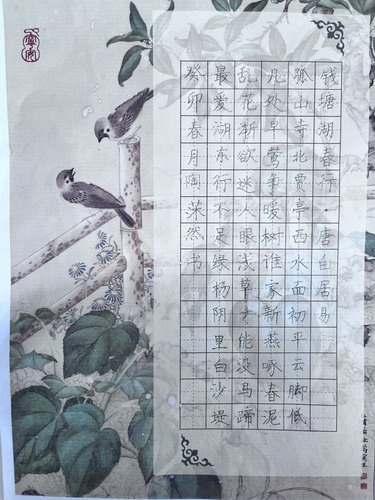 钱塘湖春行·唐白居易
孤山寺北贾亭西水面初平云脚低
凡处早莺争暖树谁家新燕啄春泥
乱花渐欲迷人眼浅草才能没马蹄
最爱湖东行不足绿杨阴里白沙堤
癸卯春月陶荣然书